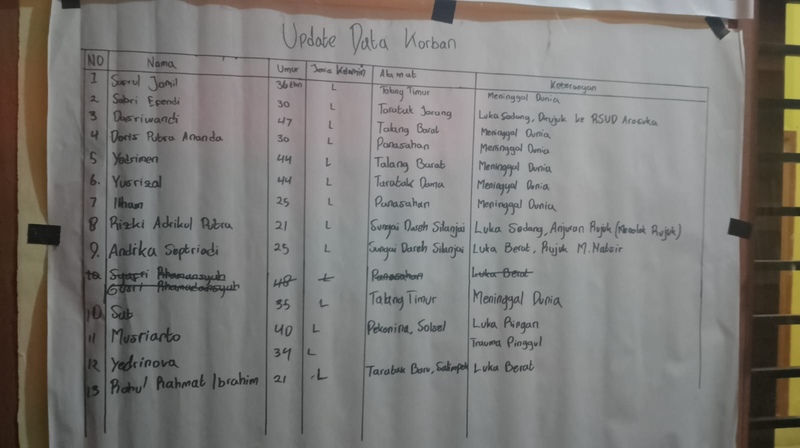 Update Data Korban
NO Nama Umur Jenis Kelamin Alamat Keterangan
1 Jamil 36 thn L Talang Timur Meninggal Dunia
2 Sabri Ependi 30 L Taratak Jarang Luka Sadang, Drujuk ke RSUD Arosuka
3 Dasriwandi 47 L Talang Barat Meninggal Dunia
4 Doris Putra Ananda 30 L Panasahan Meninggal Dunia
5 Yadrimen 44 L Talang Barat Meninggal Dunia
6. Yusrizal 44 L Taratak Dama Meninggal Dunia
7 Ilham 25 L Panasahan Meninggal Dunia
8 Rizki Adrikul Putra 21 L Sungai Dareh Silanjai Luka Sadang, Anjuran Rujuk (Menolak Rujuk)
9. Andrika Septriadi 25 L Sungai Dareh Silanjai Luka Berat, Rujuk M.Natsir
48 L Panasahan Luka Berat
10 Sab 35 L Talang Timur Meninggal Dunia
11 Musrianto 40 L Pekonina, Solsel Luka Ringan
Trauma Pinggul
12 Yedrinova 34 L
13 Rahul Rahmat Ibrahim 21 L Taratak Baru, Luka Berat